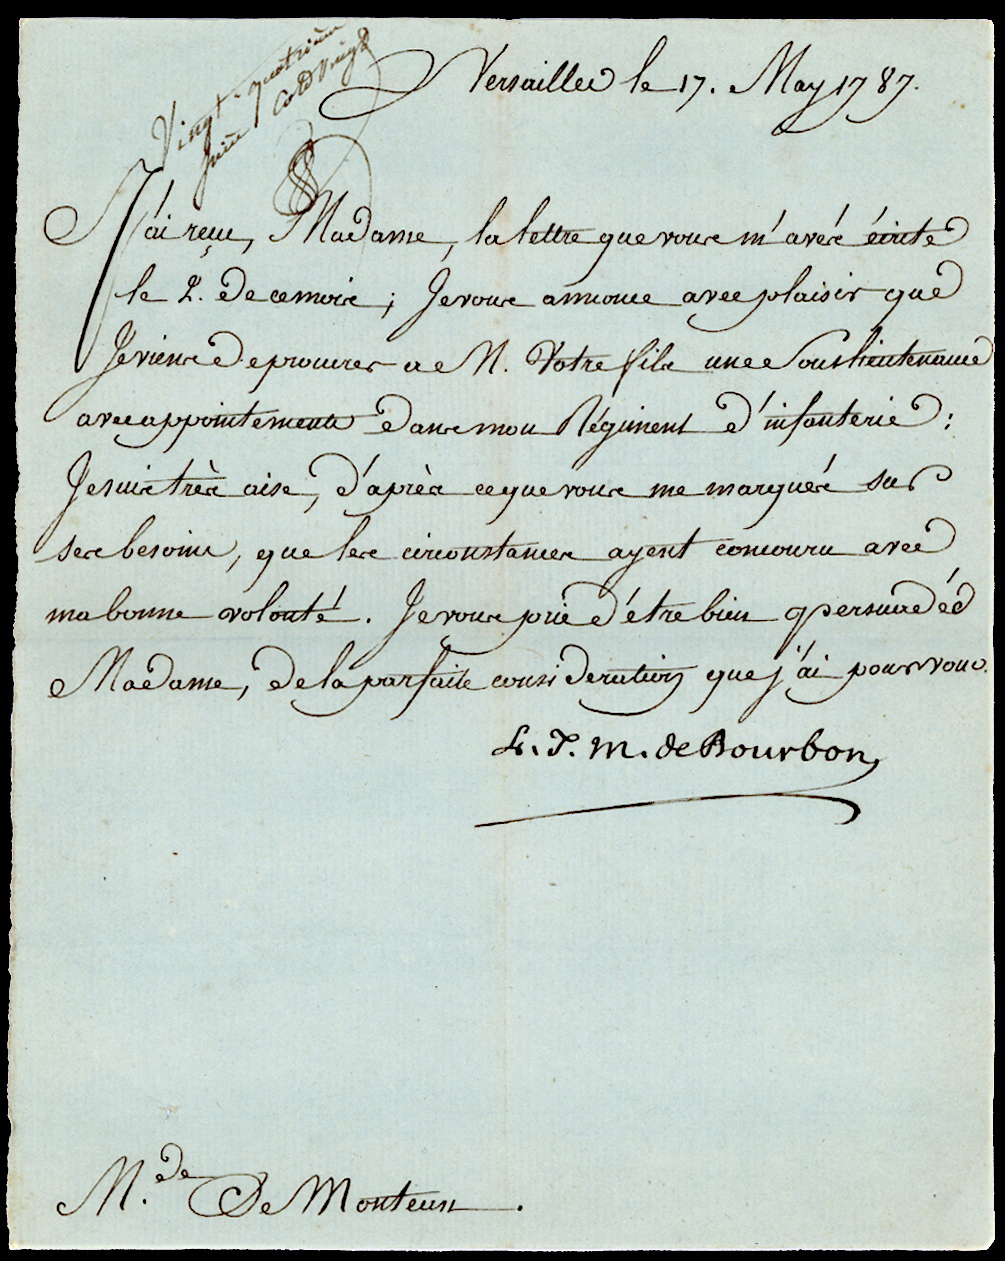 Vingt-quatrieme
piece cotté Vingt
Versailles le 17. May 1787.
J'ai reçu, Madame, la lettre que vous m'avés écrite
le 2. de ce mois; Je vous annonce avec plaisir que
Je viens de procurer a M. Votre fils une Souslieutenance
avec appointements dans mon Régiment d'infanterie:
Je suis très aise, d'après ce que vous me marqués sur
ses besoins, que les circonstances ayent concouru avec
ma bonne volonté. Je vous prie d'étre bien persuadée
Madame, de la parfaite consideration que j'ai pour vous.
L. J. M. de Bourbon
M.de De Monteun.